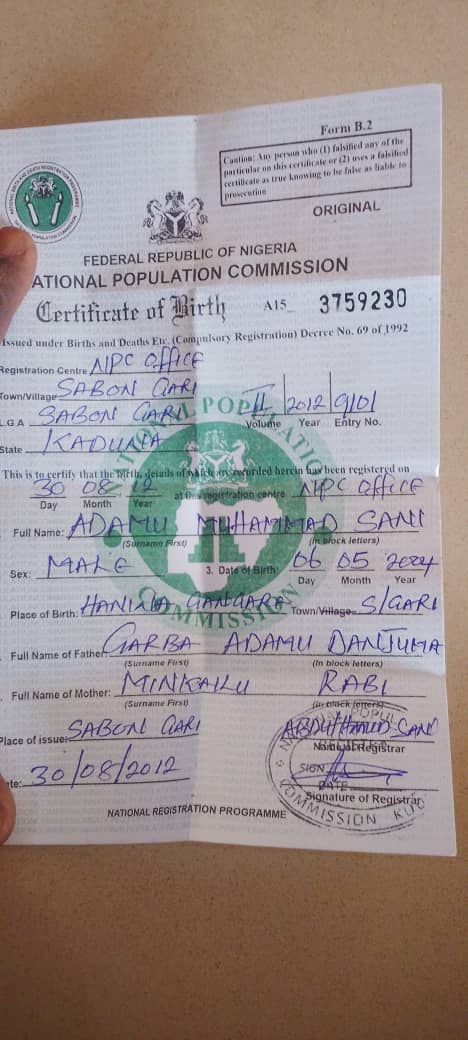 Form B.2
Caution: Any person who (1) falsified any of the
particular on this certificate or (2) uses a falsified
certificate as true knowing to be false as liable to
prosecution
ORIGINAL
FEDERAL REPUBLIC OF NIGERIA
ATIONAL POPULATION COMMISSION
Certificate of Birth A15_ 3759230
Issued under Births and Deaths Etc. (Compulsory Registration) Decree No. 69 of 1992
Registration Centre NPC OFFICE
Town/Village SABON GARI
L.G.A SABON GARI II 2012 9/01
Volume Year Entry No.
State KADUNA
This is to certify that the birth, details of which are recorded herein has been registered on
30 08 12 at this registration centre NPC OFFICE
Day Month Year
Full Name: ADAMU MUHAMMAD SANI
(Surname First) (In block letters)
Sex: MALE 3. Date of Birth: 06 05 2004
Day Month Year
Place of Birth: GANGARE Town/Village S/GARI
Full Name of Father: GARBA ADAMU DANJUMA
(Surname First) (In block letters)
Full Name of Mother: RABI
(Surname First) (In block letters)
Place of issue: SABON GARI SANI
Name of Registrar
SIGN
te: 30/08/2012 DATE
Signature of Registrar
COMMISSION
NATIONAL REGISTRATION PROGRAMME